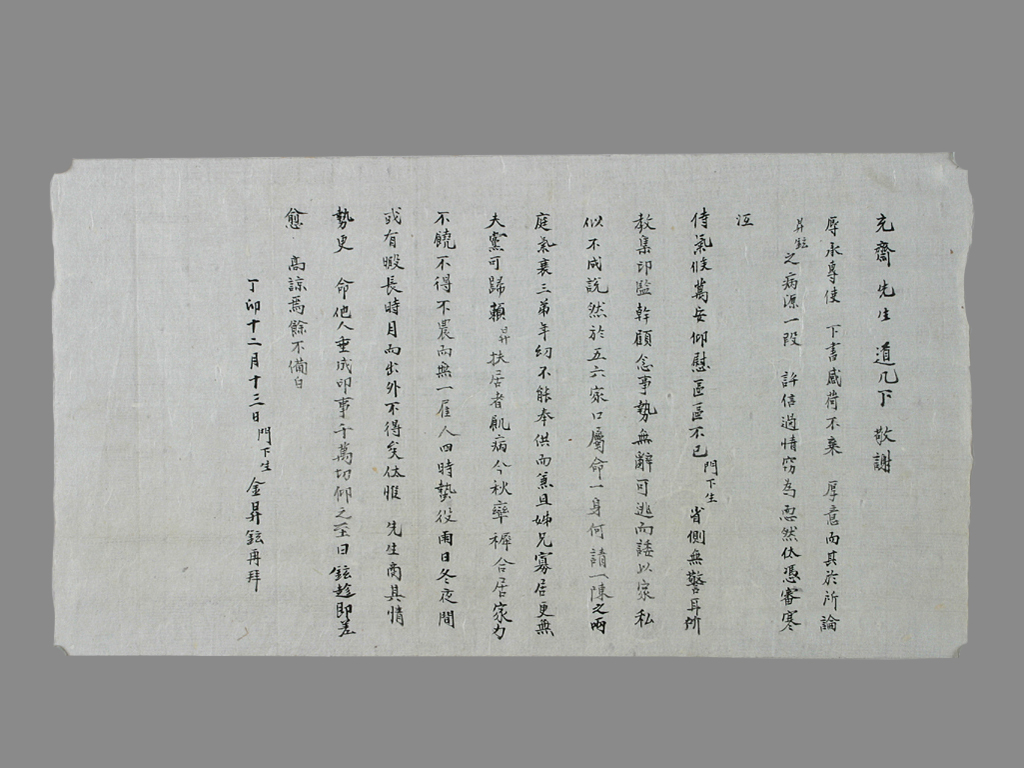 充齋先生 道几下 敬謝
厚永專使 下書感荷不棄 厚意而其於所論
昇鉉之病源一段 許信適情窃為恧然伏憑審寒
沍
侍氣候萬安仰慰區區不已門下生省側無警耳所
教集印監幹顧念事勢無辭可逃而諉以家私
似不成說然於五六家口屬命一身何請一陳之兩
庭氣衰三弟年幼不能奉供而兼且姊兄寡居更無
夫黨可歸賴昇扶居者肌病今秋率稚合居家力
不饒不得不農而無一雇人四時執役雨日冬夜間
或有暇長時月而出外不得矣伏惟 先生商其情
勢更 命他人垂成印事千萬切仰之至曰鉉趁即差
愈 高諒焉餘不備白
丁卯十二月十三日門下生金昇鉉再拜